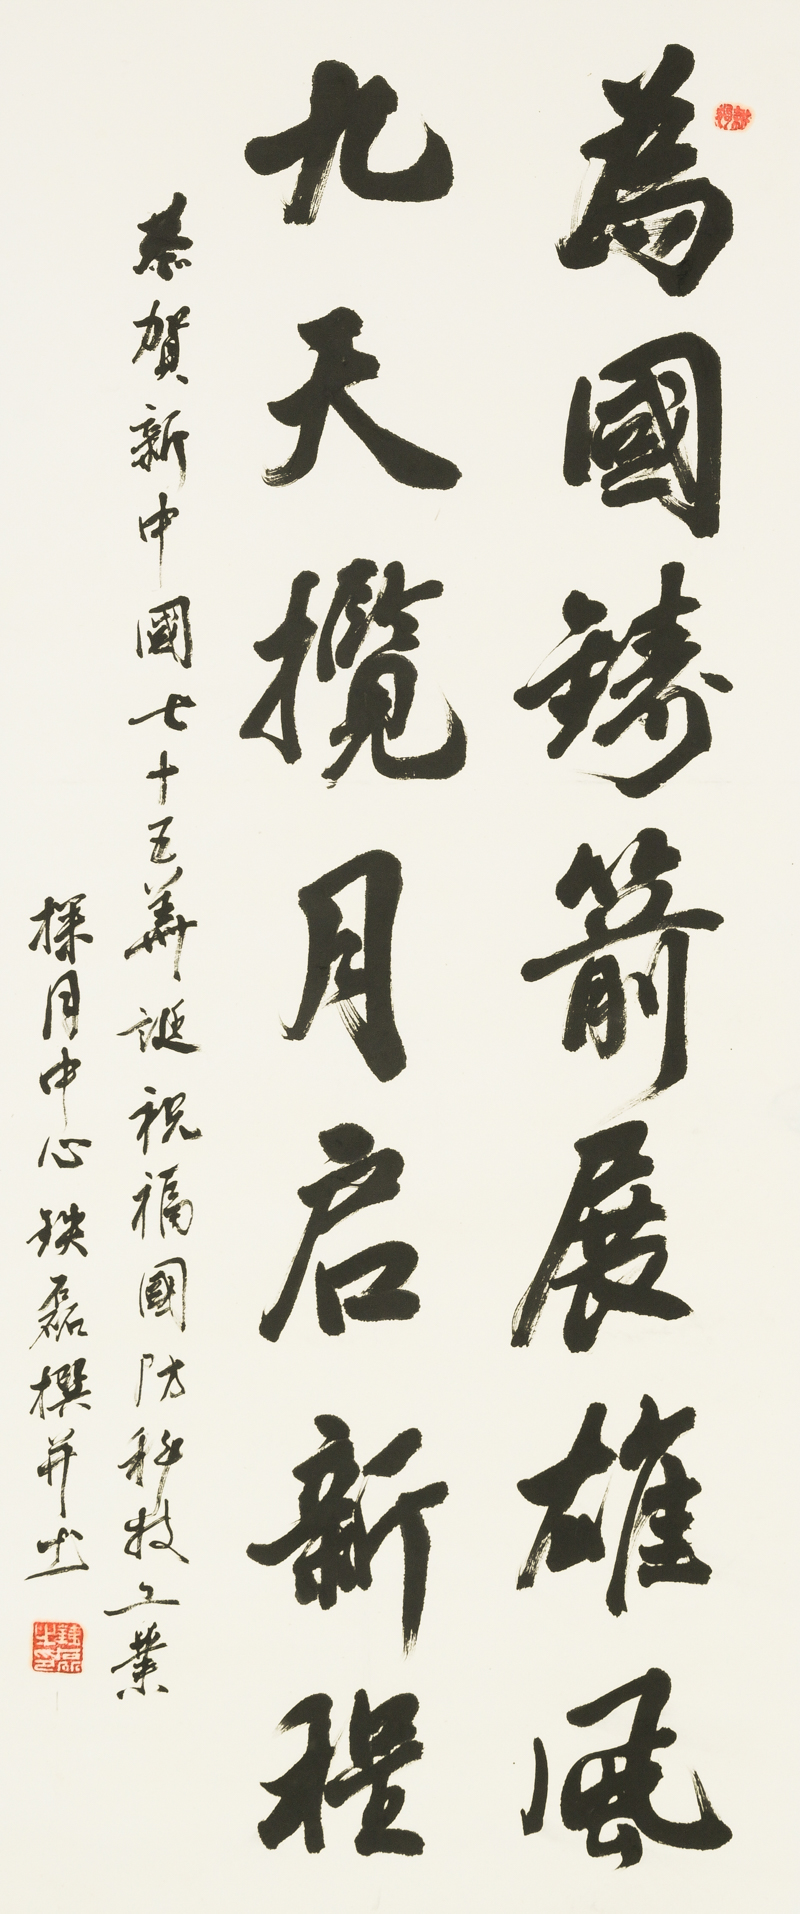 為國鑄箭展雄風
九天攬月启新程
恭賀新中國七十五華誕祝福國防科技工業
探月中心鉄磊撰并书